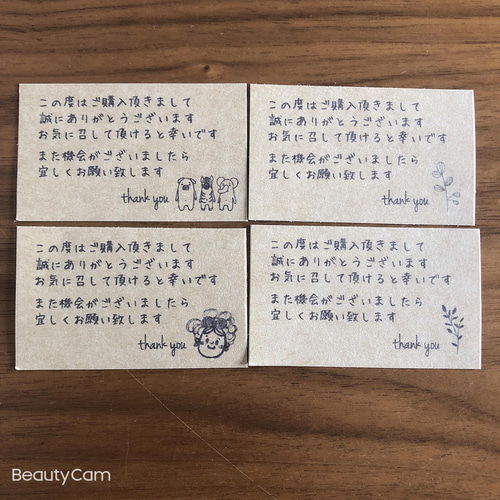 この度はご購入頂きまして
誠にありがとうございます
お気に召して頂けると幸いです
また機会がございましたら
宜しくお願い致します
thank you
この度はご購入頂きまして
誠にありがとうございます
お気に召して頂けると幸いです
また機会がございましたら
宜しくお願い致します
thank you
この度はご購入頂きまして
誠にありがとうございます
お気に召して頂けると幸いです
また機会がございましたら
宜しくお願い致します
thank you
この度はご購入頂きまして
誠にありがとうございます
お気に召して頂けると幸いです
また機会がございましたら
宜しくお願い致します
thank you
BeautyCam